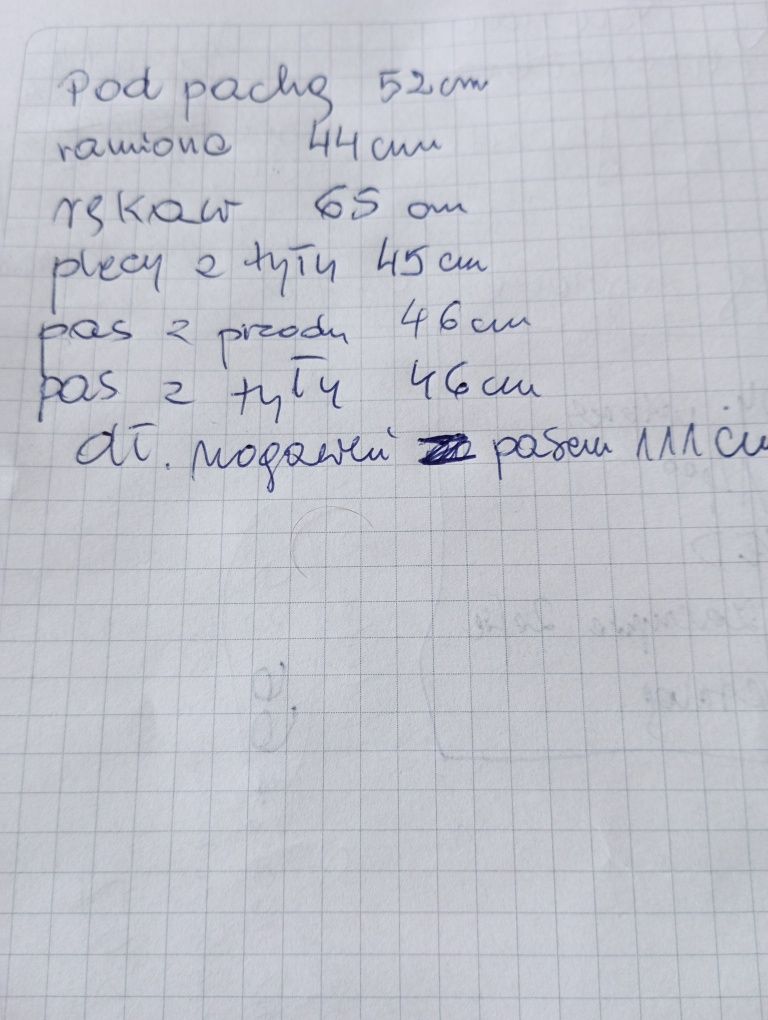 Pod pachą 52 cm
ramiona 44 cm
rękaw 65 cm
plecy z tyłu 45 cm
pas z przodu 46 cm
pas z tyłu 46 cm
dł. nogawki pasem 111 cm